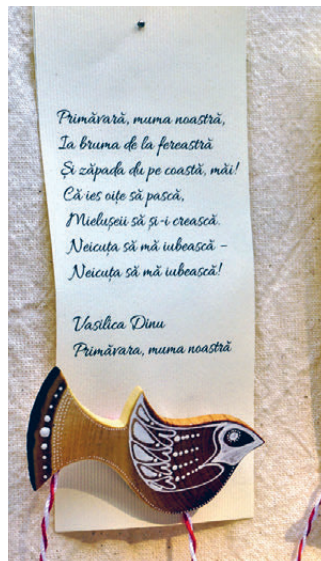 Primăvară, muma noastră,
Ia bruma de la fereastră
Și zăpada du pe coastă, măi!
Că ies oițe să pască,
Mielușeii să și-i crească.
Neicuța să mă iubească –
Neicuța să mă iubească!
Vasilica Dinu
Primăvara, muma noastră